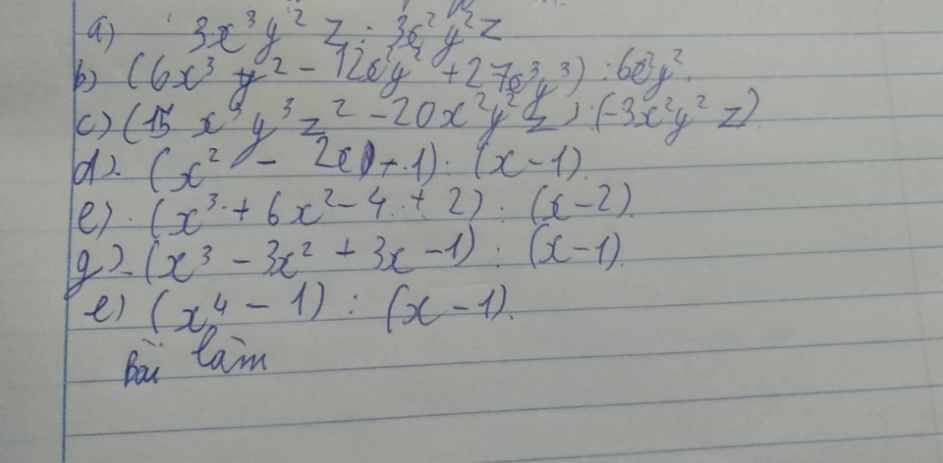 a) 3x³y²z : 3x²y²z
b) (6x³y² - 12x²y² + 27x³y³) : 6x²y².
c) (15x³y³z² - 20x²y²z) : (-3x²y²z)
d). (x² - 2x + 1) : (x-1).
e). (x³ + 6x² - 4 + 2) : (x-2).
g). (x³ - 3x² + 3x - 1) : (x-1).
e) (x⁴ - 1) : (x-1).
Bài làm